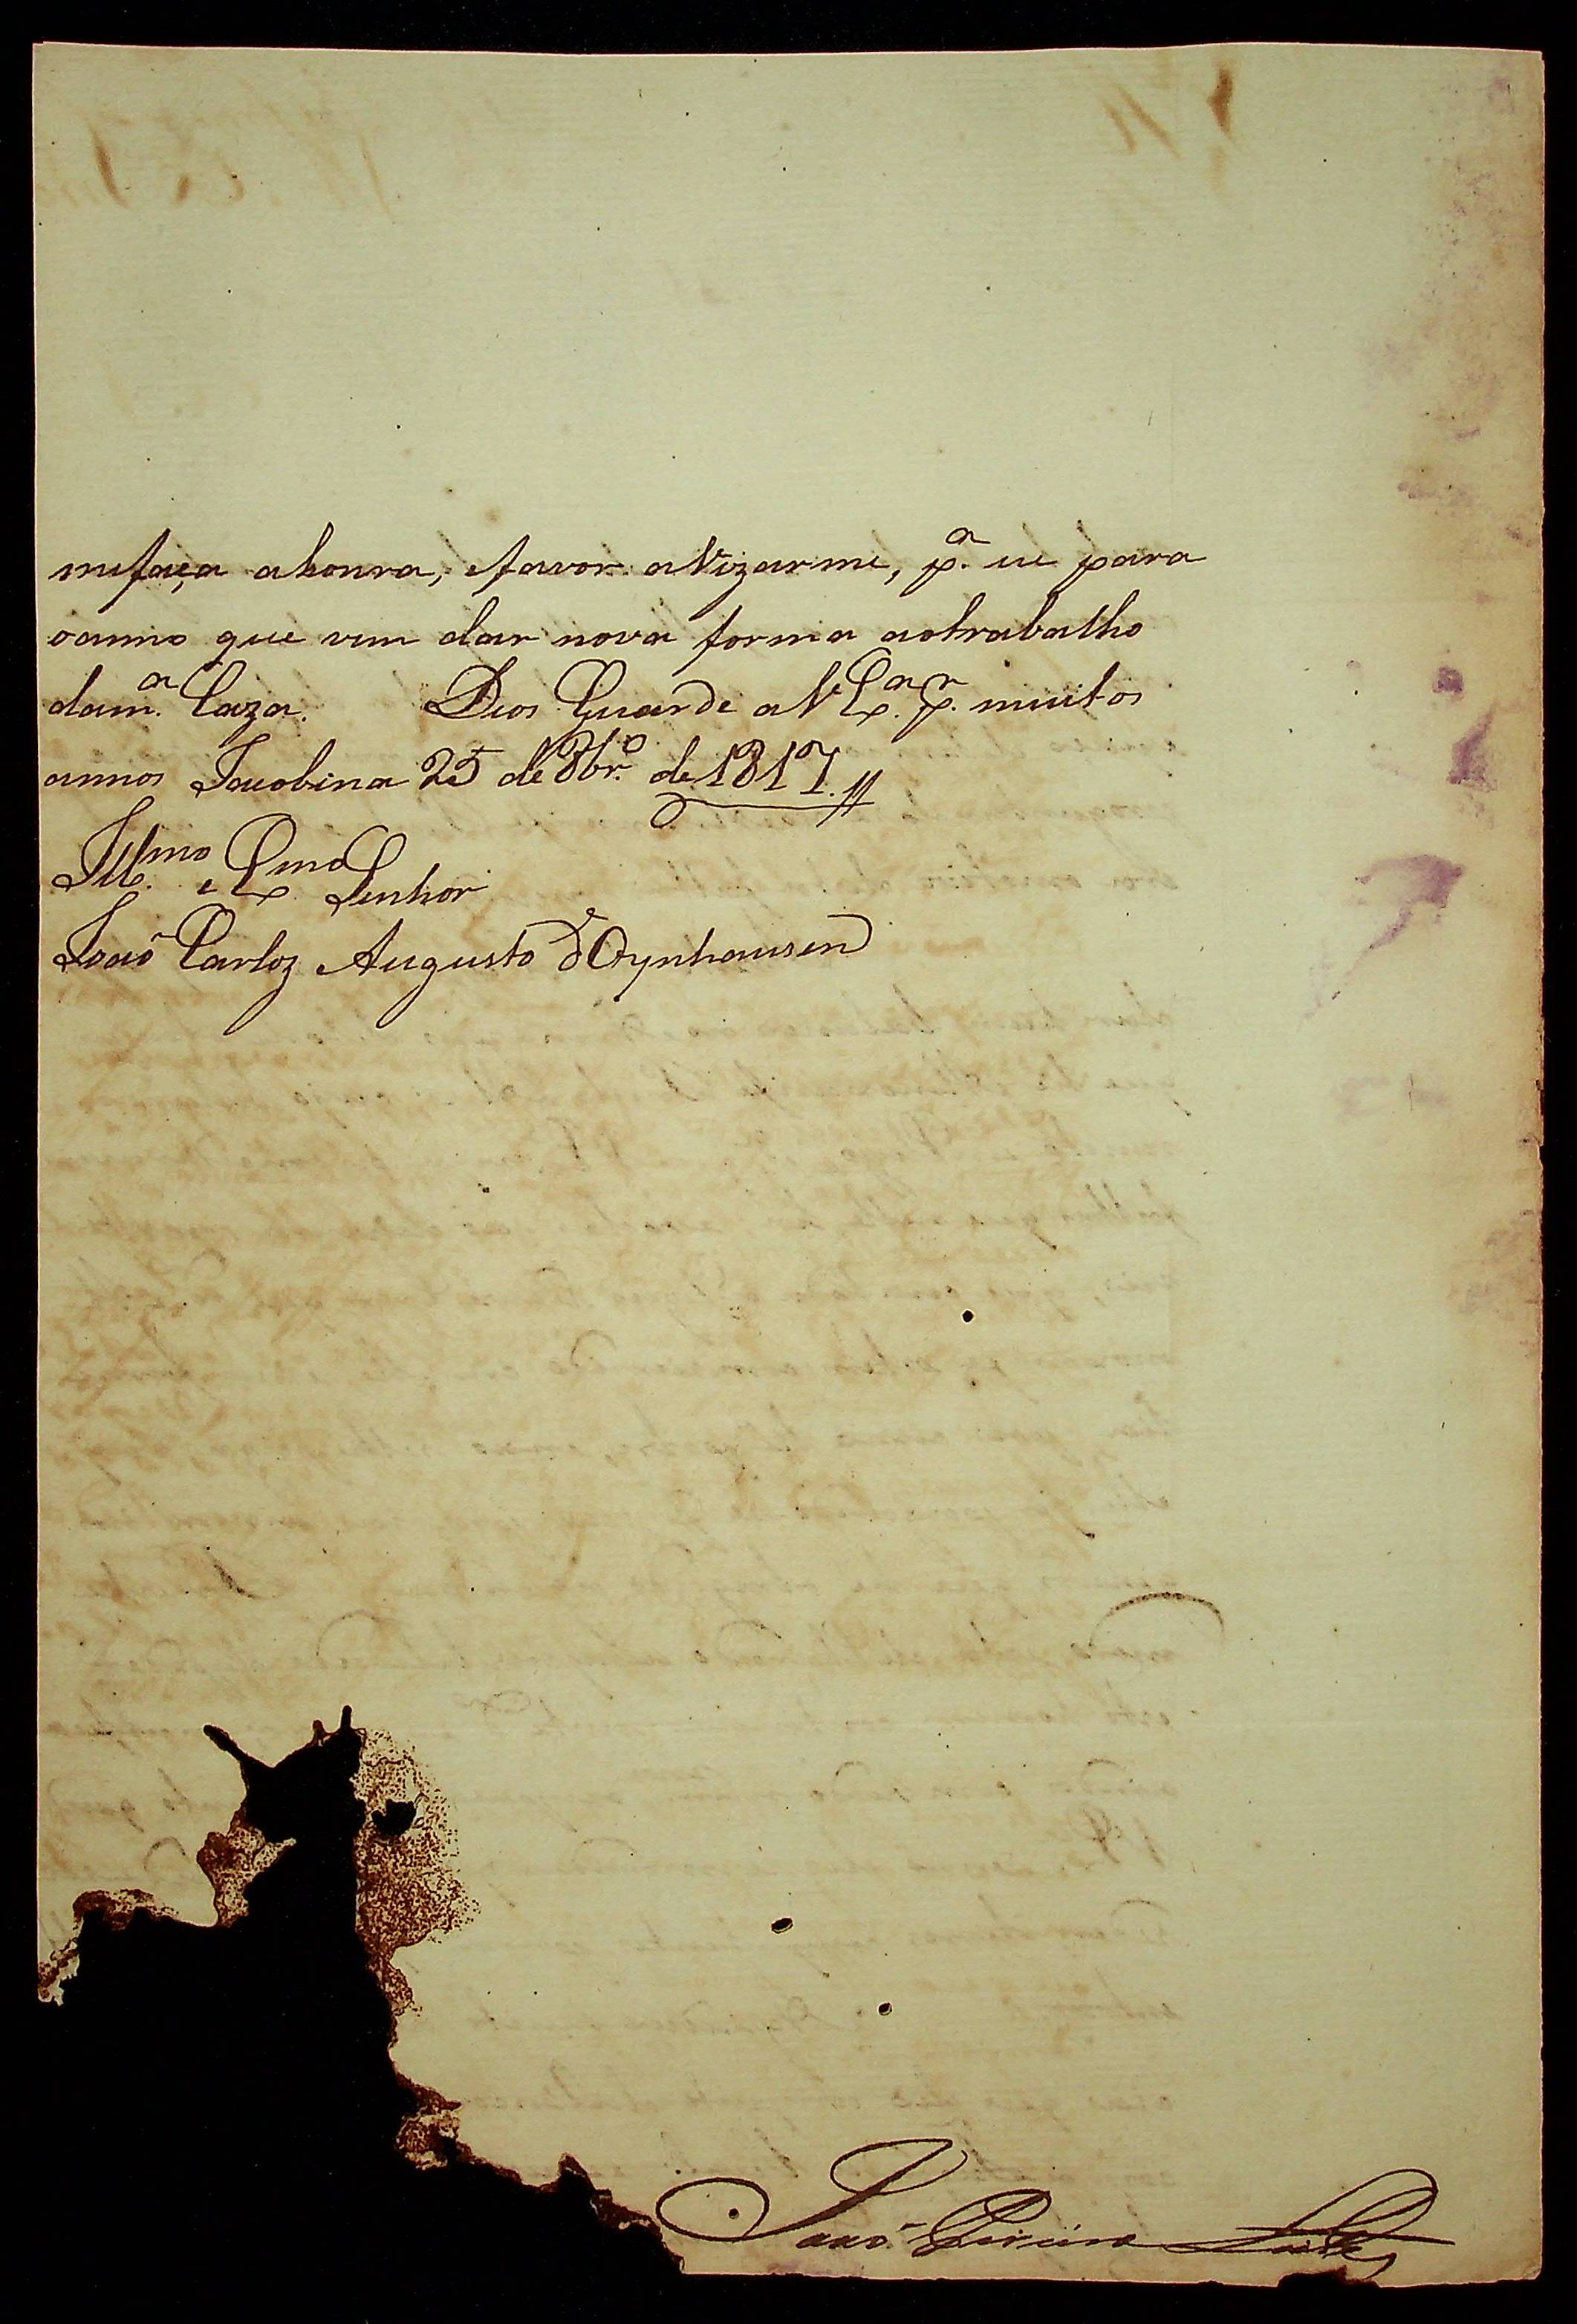 mefaça ahonra, efavor aVizarme, p.ª eu para
oanno que vem dar nova forma aotrabalho
dam.ª Caza. Deos Guarde aVEx.ª p.ʳ muitos
annos Jacobina 25 de 8br.º de 1817.
Ill.ᵐᵒ e Ex.ᵐᵒ Senhor
Joaõ Carloz Augusto d'Oynhausen
Joaõ Pereira Leite